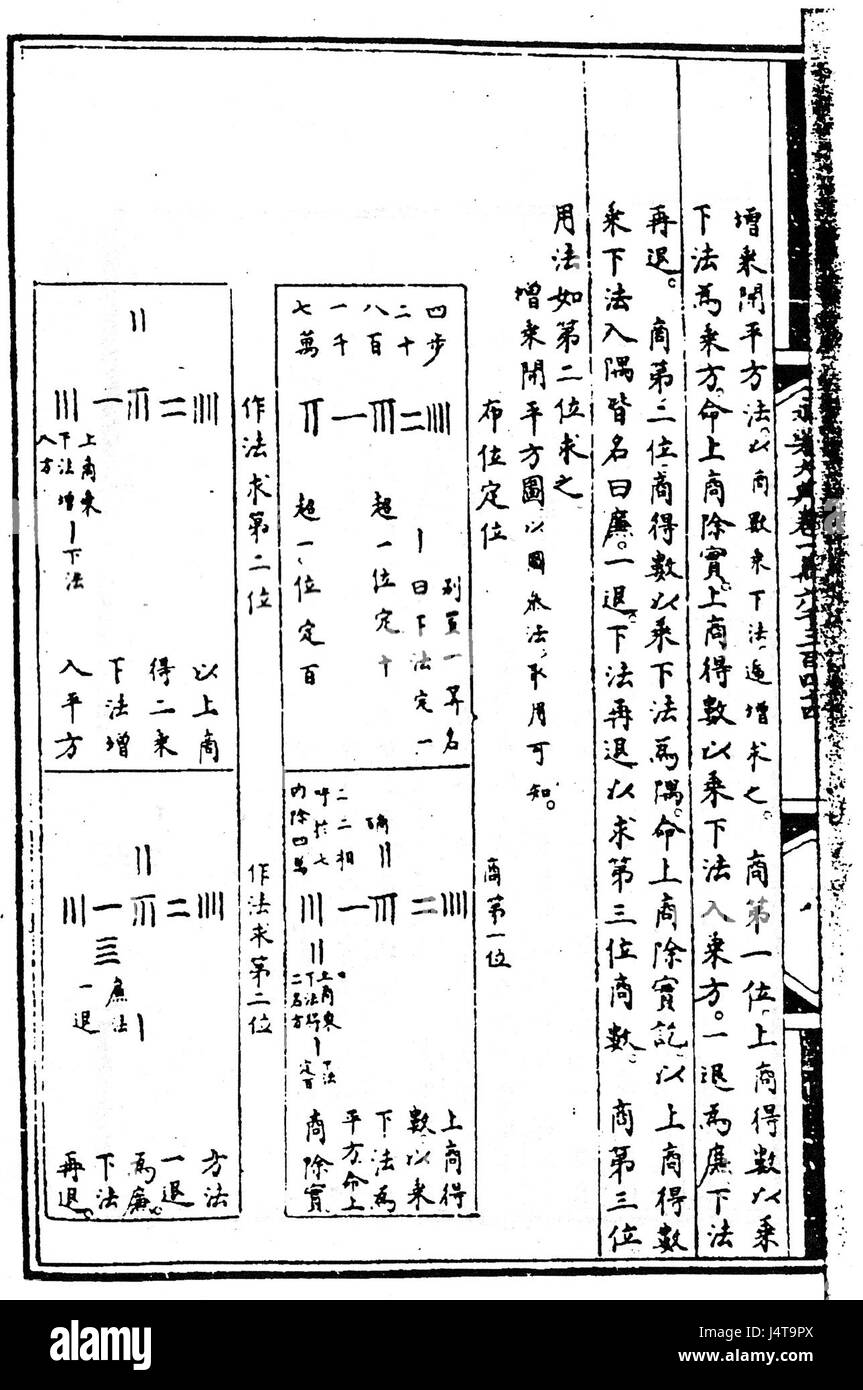 永樂大典卷一萬六千三百四十四
增乘開平方法。以商數乘下法遞增求之。 商第一位上商得數以乘
下法為乘方。命上商除實。上商得數以乘下法入乘方。一退為廉下法
再退。 商第二位商得數以乘下法為隅。命上商除實訖以上商得數
乘下法入隅皆名曰廉。一退。下法再退以求第三位商數。 商第三位
用法如第二位求之
增乘開平方圖以圖參法取用可知。
布位定位
四步
二十
八百
一千
七萬
別置一算名
曰下法定一
超一位定十
超一位定百
商第一位
商
二二相
呼於七
內除四萬
上商乘
下法得
二名方
下法
定百
上商得
數以乘
下法為
平方命上
商除實
作法求第二位
上商乘
下法增
入方
下法
以上商
得二乘
下法增
入平方
作法求第二位
廉法
一退
方法
一退
為廉。
下法
再退。
alamy stock photo
J4T9PX
www.alamy.com